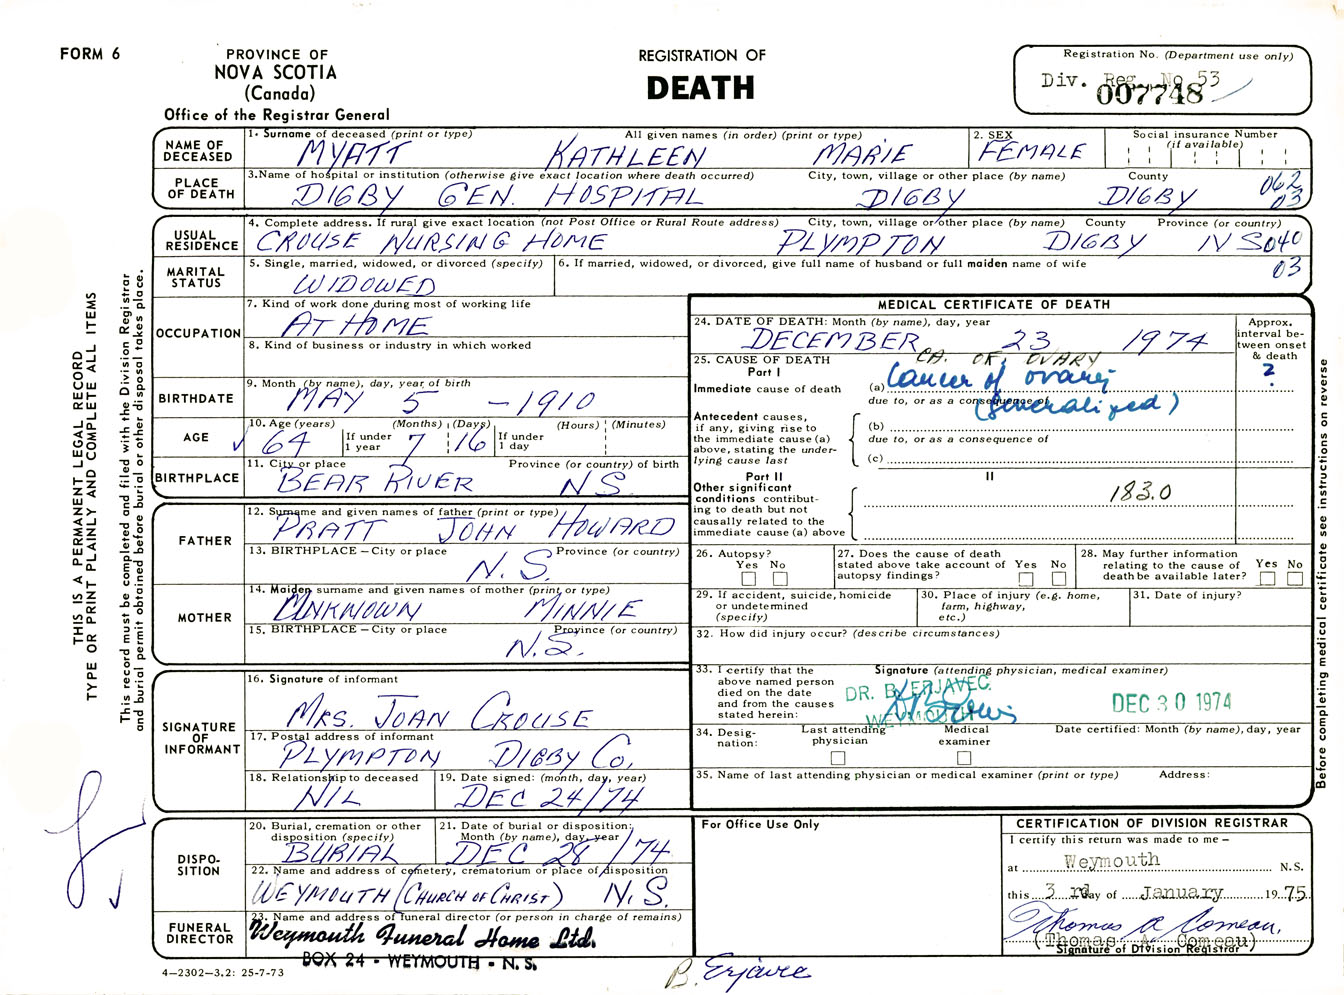 FORM 6
PROVINCE OF
NOVA SCOTIA
(Canada)
Office of the Registrar General
REGISTRATION OF
DEATH
Registration No. (Department use only)
Div. Reg. No 53
007748
THIS IS A PERMANENT LEGAL RECORD
TYPE OR PRINT PLAINLY AND COMPLETE ALL ITEMS
This record must be completed and filed with the Division Registrar
and burial permit obtained before burial or other disposal takes place.
NAME OF DECEASED
1. Surname of deceased (print or type) All given names (in order) (print or type) 2. SEX Social insurance Number (if available)
MYATT KATHLEEN MARIE FEMALE
PLACE OF DEATH
3. Name of hospital or institution (otherwise give exact location where death occurred) City, town, village or other place (by name) County
DIGBY GEN. HOSPITAL DIGBY DIGBY 062 03
USUAL RESIDENCE
4. Complete address. If rural give exact location (not Post Office or Rural Route address) City, town, village or other place (by name) County Province (or country)
CROUSE NURSING HOME PLYMPTON DIGBY N S 040
03
MARITAL STATUS
5. Single, married, widowed, or divorced (specify) 6. If married, widowed, or divorced, give full name of husband or full maiden name of wife
WIDOWED
OCCUPATION
7. Kind of work done during most of working life
AT HOME
8. Kind of business or industry in which worked
BIRTHDATE
9. Month (by name), day, year of birth
MAY 5 - 1910
AGE
10. Age (years) (Months) (Days) (Hours) (Minutes)
64 If under 1 year 7 16 If under 1 day
BIRTHPLACE
11. City or place Province (or country) of birth
BEAR RIVER NS
FATHER
12. Surname and given names of father (print or type)
PRATT JOHN HOWARD
13. BIRTHPLACE – City or place Province (or country)
N.S.
MOTHER
14. Maiden surname and given names of mother (print or type)
UNKNOWN MINNIE
15. BIRTHPLACE – City or place Province (or country)
N.S.
SIGNATURE OF INFORMANT
16. Signature of informant
MRS. JOAN CROUSE
17. Postal address of informant
PLYMPTON DIGBY CO.
18. Relationship to deceased 19. Date signed: (month, day, year)
NIL DEC 24/74
DISPOSITION
20. Burial, cremation or other disposition (specify) 21. Date of burial or disposition: Month (by name), day, year
BURIAL DEC 28/74
22. Name and address of cemetery, crematorium or place of disposition
WEYMOUTH (CHURCH OF CHRIST) N.S.
FUNERAL DIRECTOR
23. Name and address of funeral director (or person in charge of remains)
Weymouth Funeral Home Ltd.
BOX 24 - WEYMOUTH - N. S.
4—2302—3.2: 25-7-73
MEDICAL CERTIFICATE OF DEATH
24. DATE OF DEATH: Month (by name), day, year
DECEMBER 23 1974
Approx. interval between onset & death
2
?
25. CAUSE OF DEATH
CA. OF OVARY
Part I
Immediate cause of death (a) Cancer of ovary
due to, or as a consequence of
(Generalized)
Antecedent causes, if any, giving rise to the immediate cause (a) above, stating the underlying cause last
(b)
due to, or as a consequence of
(c)
Part II
II
Other significant conditions contributing to death but not causally related to the immediate cause (a) above
183.0
26. Autopsy? Yes No
27. Does the cause of death stated above take account of autopsy findings? Yes No
28. May further information relating to the cause of death be available later? Yes No
29. If accident, suicide, homicide or undetermined (specify)
30. Place of injury (e.g. home, farm, highway, etc.)
31. Date of injury?
32. How did injury occur? (describe circumstances)
33. I certify that the above named person died on the date and from the causes stated herein:
Signature (attending physician, medical examiner)
DR. B. ERJAVEC.
WEYMOUTH
DEC 30 1974
34. Designation: Last attending physician Medical examiner Date certified: Month (by name), day, year
35. Name of last attending physician or medical examiner (print or type) Address:
Before completing medical certificate see instructions on reverse
For Office Use Only
CERTIFICATION OF DIVISION REGISTRAR
I certify this return was made to me –
at Weymouth N.S.
this 3 rd day of January 1975
Thomas A Comeau.
(Thomas A. Comeau)
Signature of Division Registrar
B. Erjavec